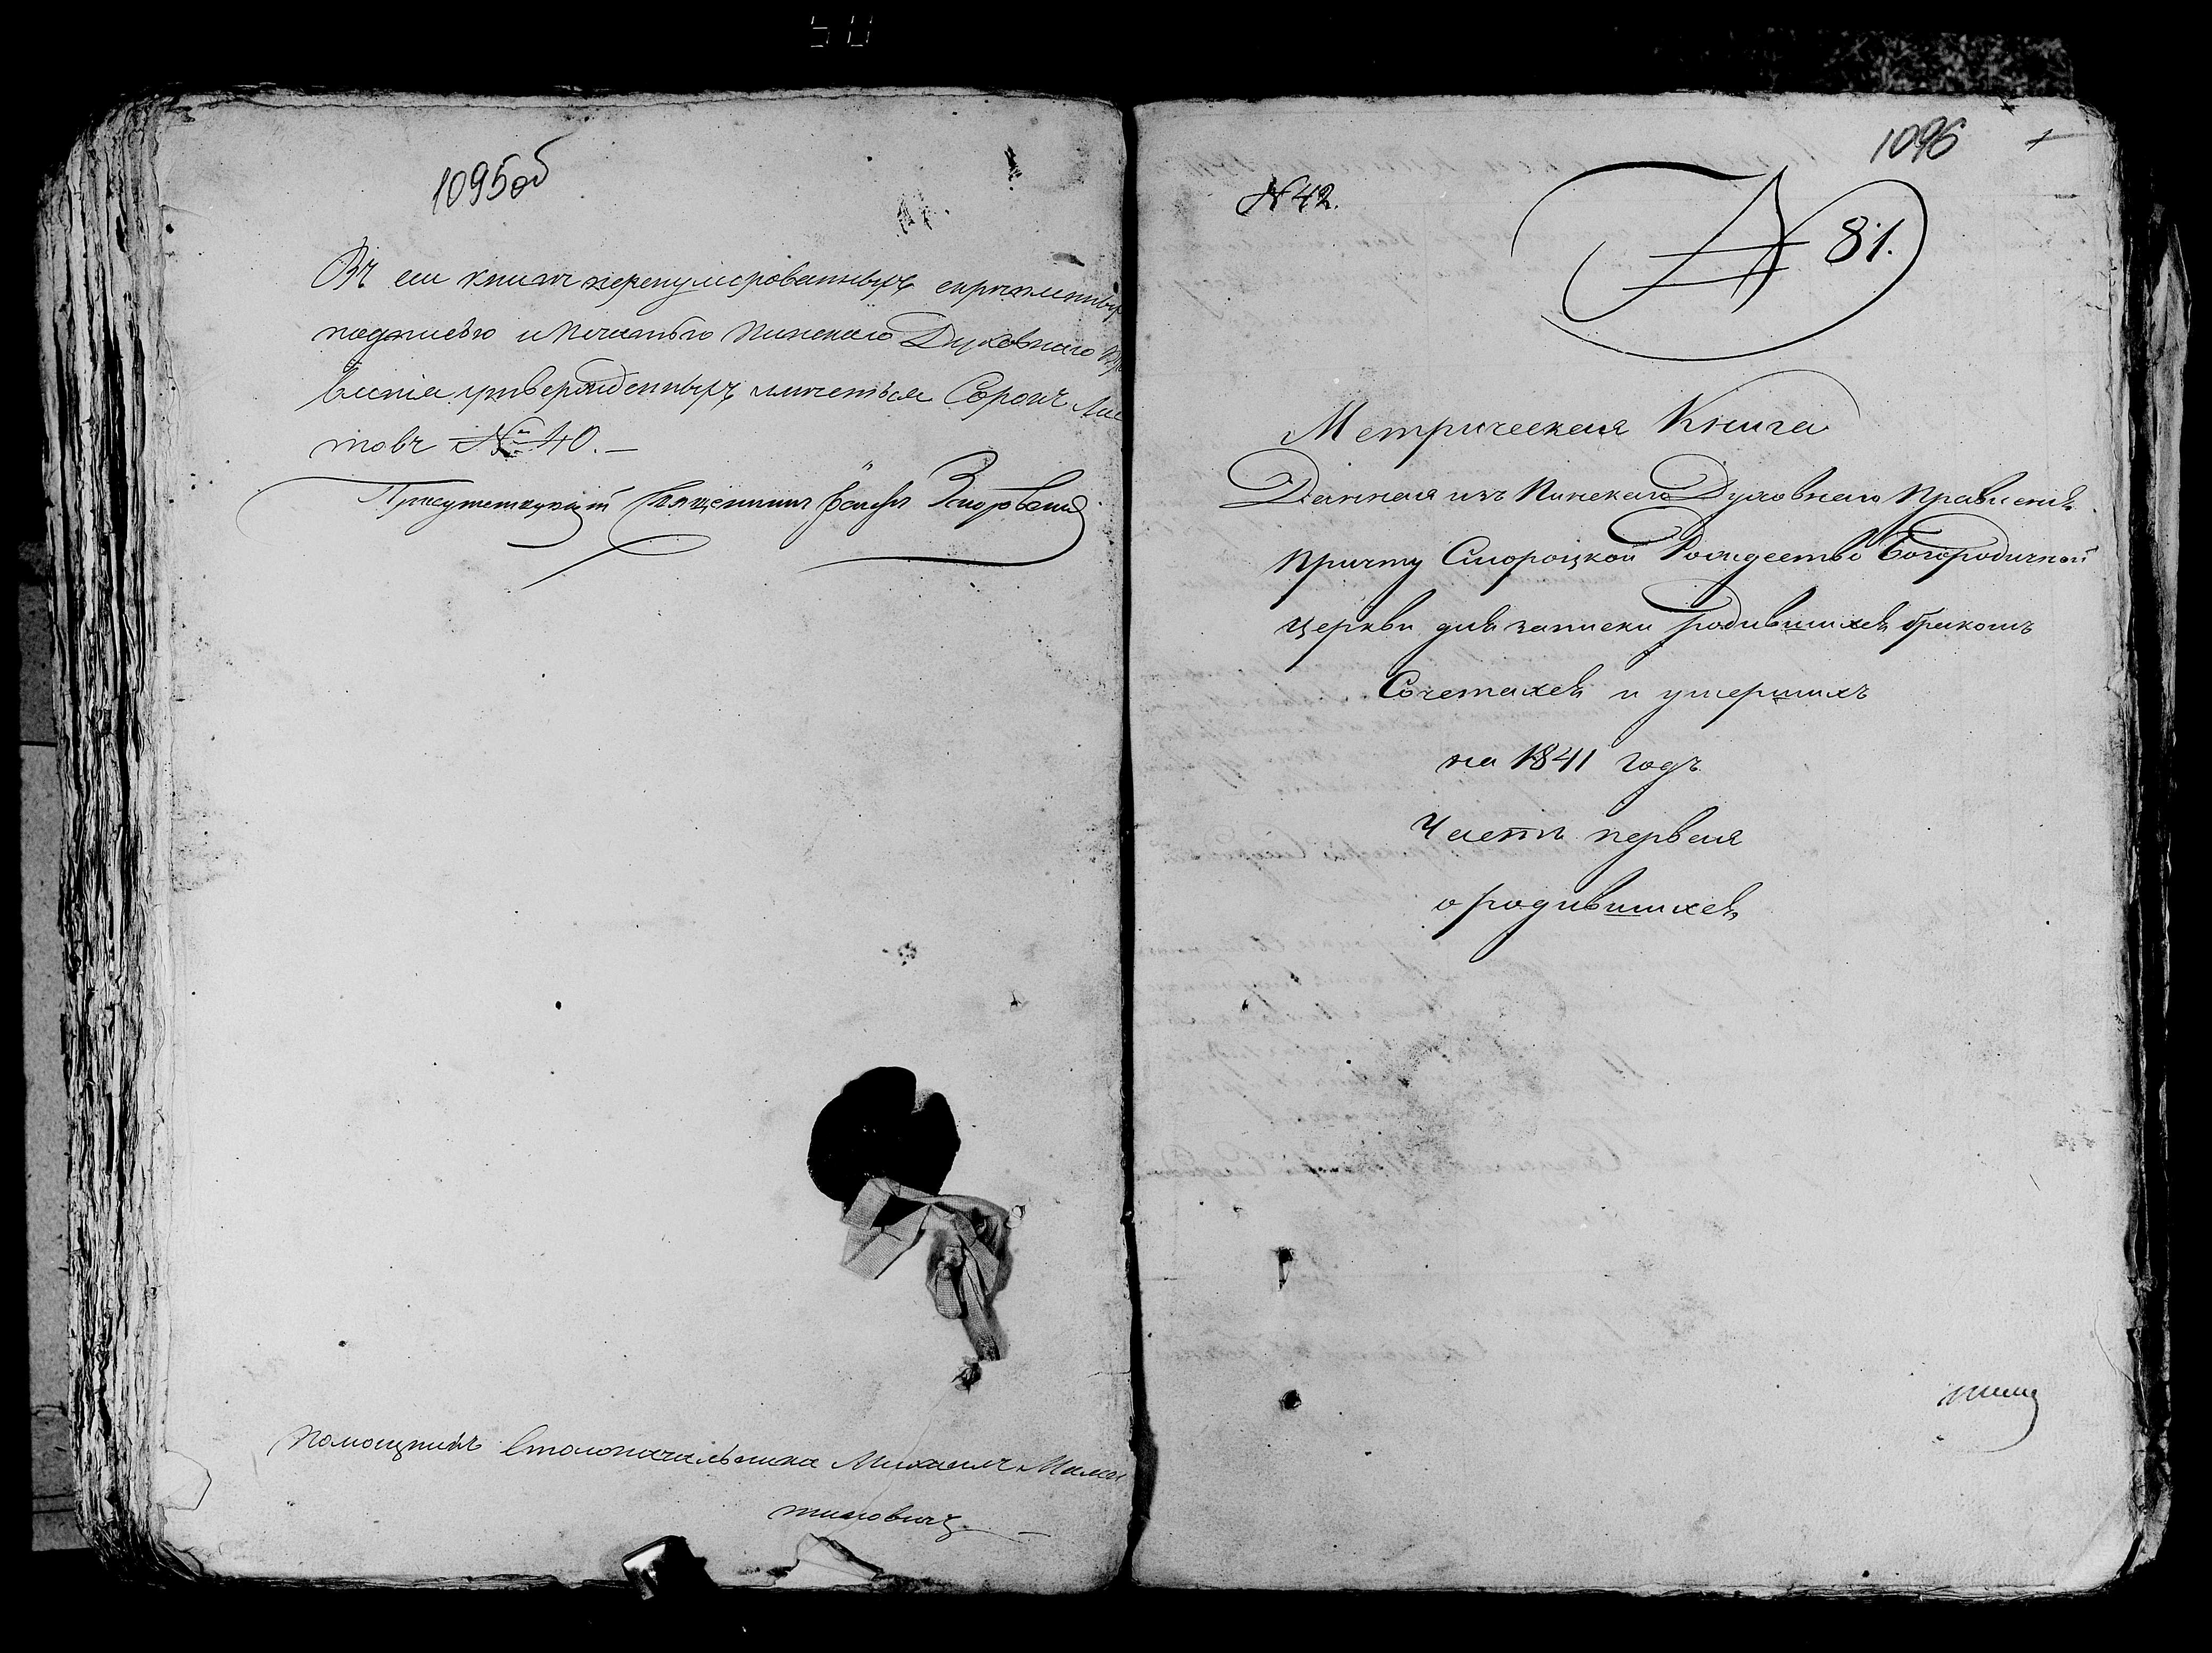 1095 об
Въ сей книгѣ перенумерованныхъ скрѣпленны
подписью и печатью Пинскаго Духовнаго
вленія утвержденныхъ имѣеться Сорокъ Лис
товъ № 40. —
Присутствующій Священникъ
Помощникъ Столоначальника Михаилъ
1096
1
N 42.
N 81.
Метрическая Книга
Данная изъ Пинскаго Духовнаго Правленія
Причту Смородской Рождество Богородичной
церкви для записки родившихся бракомъ
Сочетахся и умершихъ
на 1841 годъ
Часть первая
о родившихся